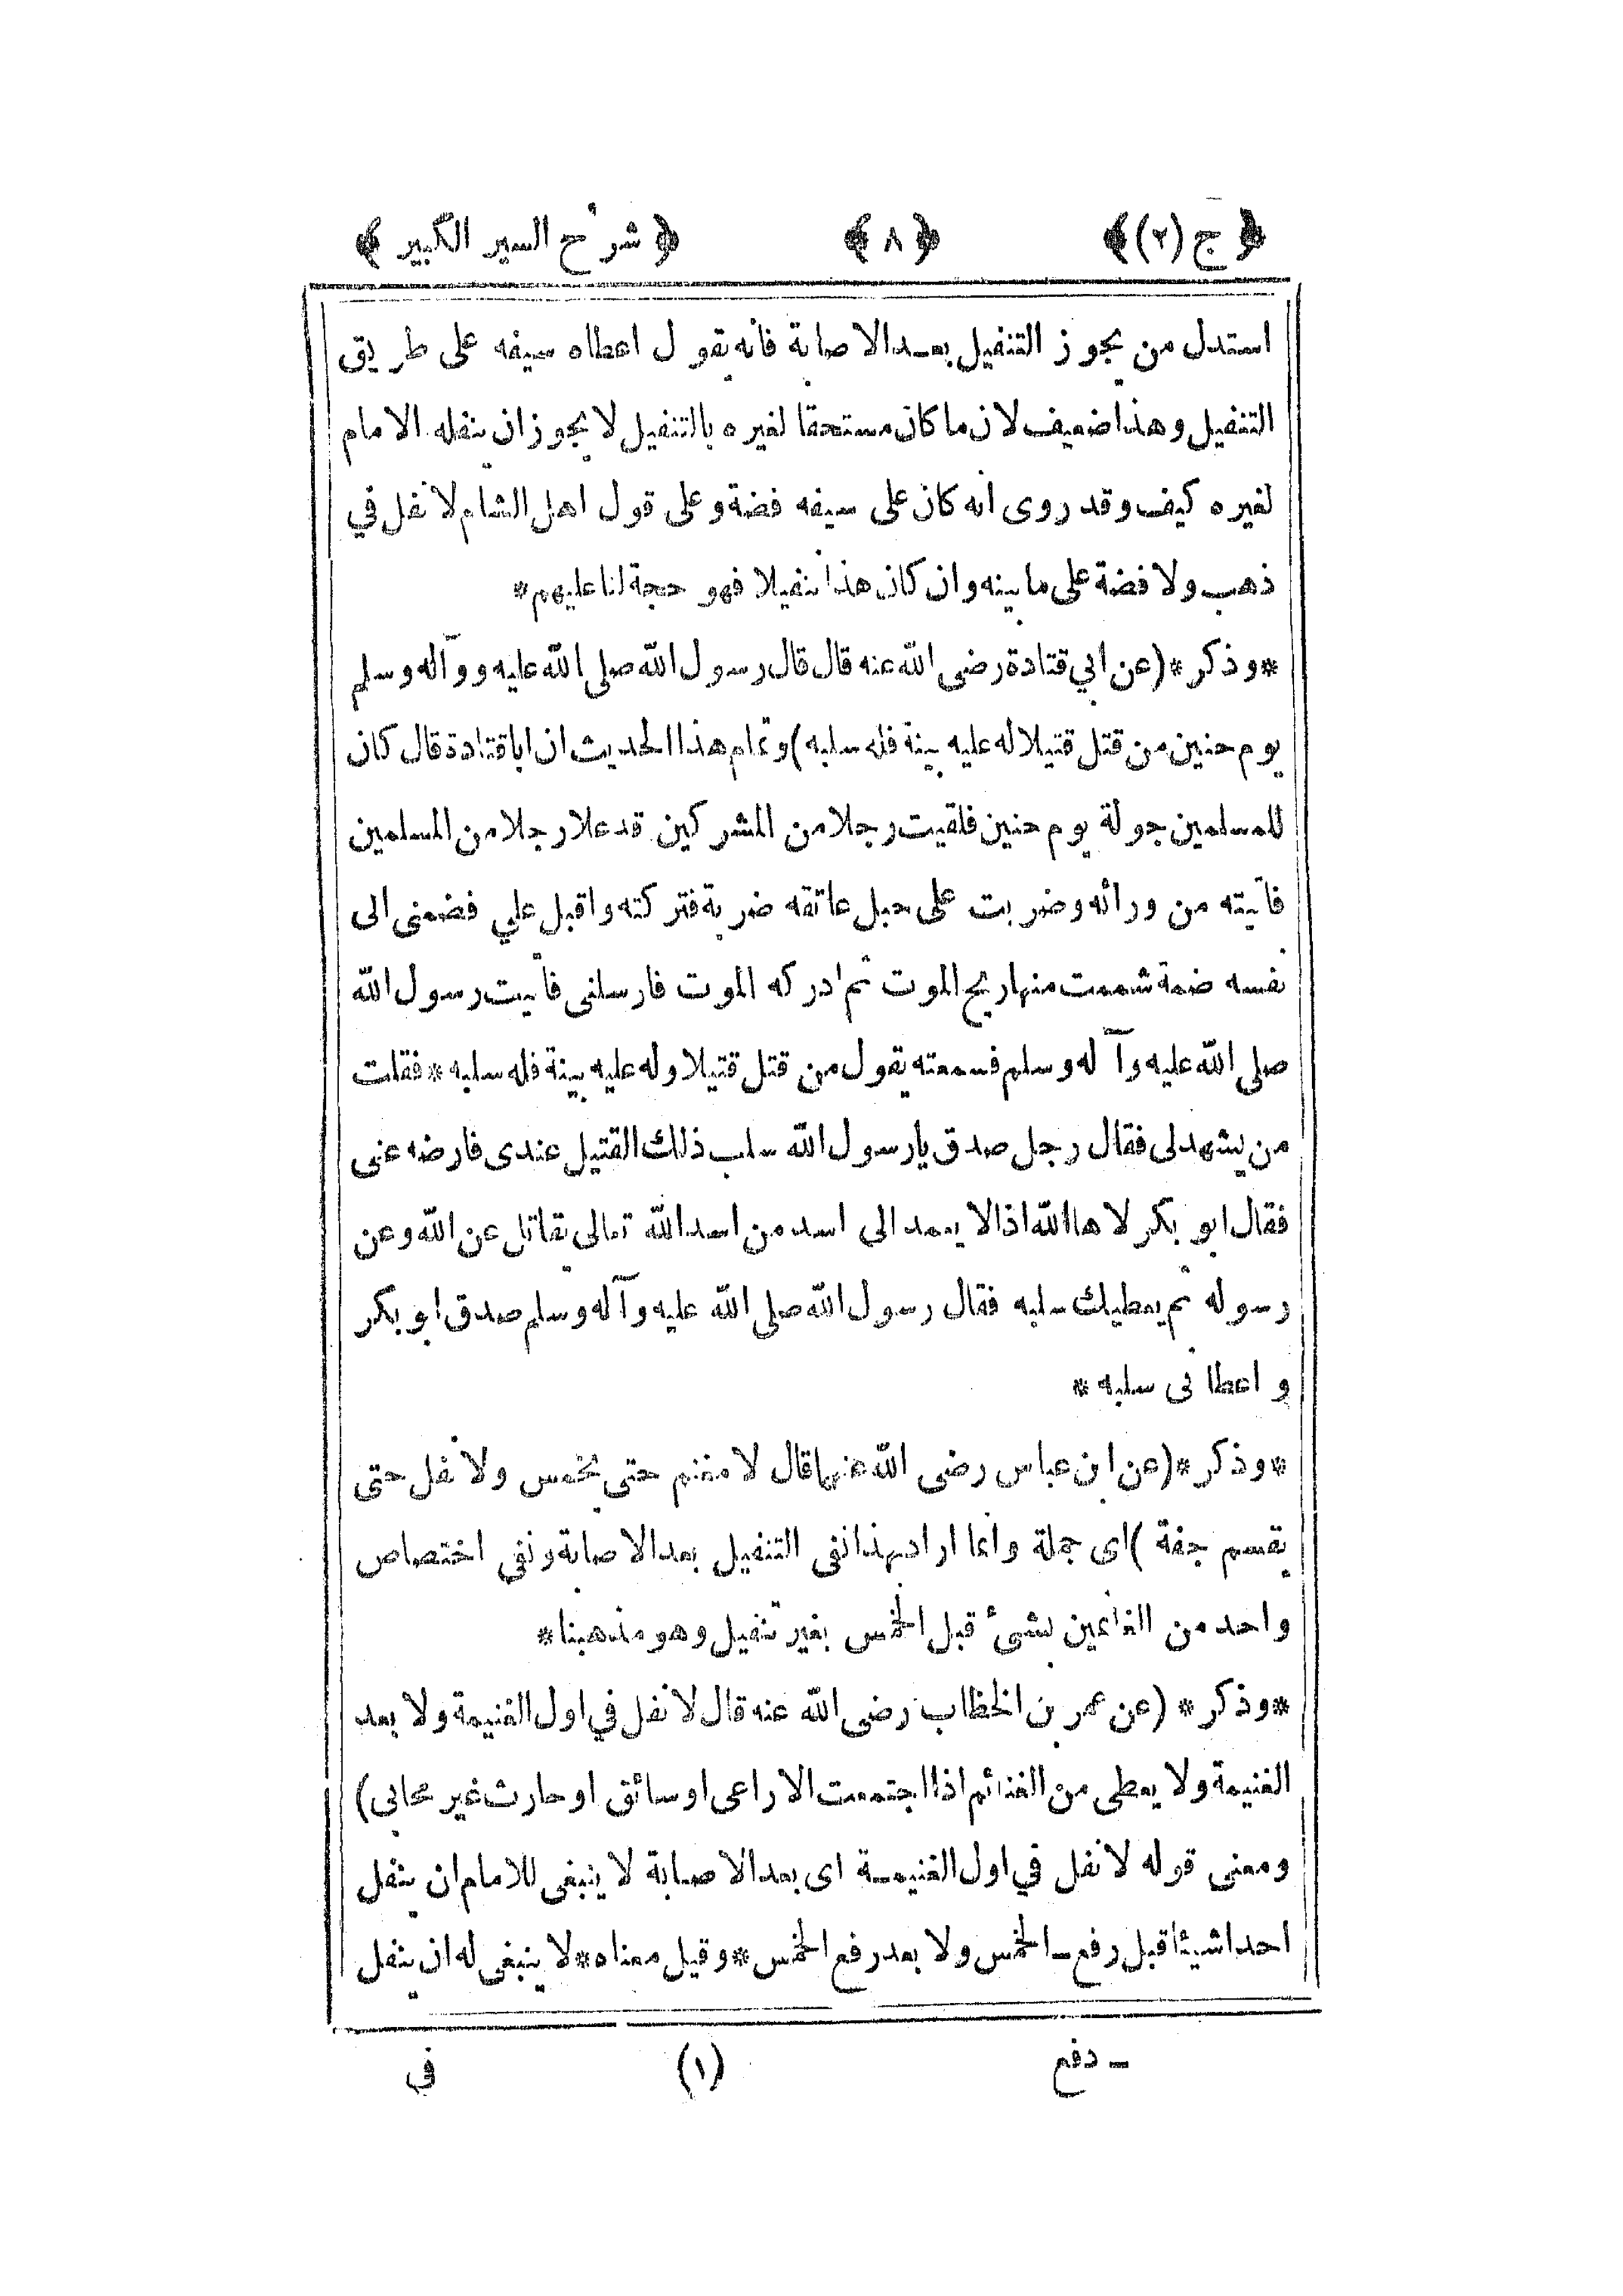 ﴿ ج (٢) ﴾ ﴿ ٨ ﴾ ﴿ شرح السير الكبير ﴾
استدل من يجوز التنفيل بعد الاصابة فانه يقول اعطاه سيفه على طريق
التنفيل وهذا ضعيف لان ما كان مستحقا لغيره بالتنفيل لا يجوز ان ينفله الامام
لغيره كيف وقد روى انه كان على سيفه فضة وعلى قول اهل الشام لا نفل في
ذهب ولا فضة على ما بينه وان كان هذا تنفيلا فهو حجة لنا عليهم *
* وذكر * (عن ابي قتادة رضى الله عنه قال قال رسول الله صلى الله عليه و وآله وسلم
يوم حنين من قتل قتيلا له عليه بينة فله سلبه) وتمام هذا الحديث ان ابا قتادة قال كان
للمسلمين جولة يوم حنين فلقيت رجلا من المشركين قد علا رجلا من المسلمين
فأتيته من ورائه وضربت على حبل عاتقه ضربة فتركته واقبل علي فضمنى الى
نفسه ضمة شممت منها ريح الموت ثم ادركه الموت فارسلنى فأتيت رسول الله
صلى الله عليه وآله وسلم فسمعته يقول من قتل قتيلا وله عليه بينة فله سلبه * فقلت
من يشهد لى فقال رجل صدق يا رسول الله سلب ذلك القتيل عندى فارضه عنى
فقال ابو بكر لا ها الله اذا لا يعمد الى اسد من اسد الله تعالى يقاتل عن الله وعن
رسوله ثم يعطيك سلبه فقال رسول الله صلى الله عليه وآله وسلم صدق ابو بكر
و اعطانى سلبه *
* وذكر * (عن ابن عباس رضى الله عنهما قال لا مغنم حتى يخمس ولا نفل حتى
يقسم جفة ) اى جملة وانما اراد بهذا نفى التنفيل بعد الاصابة ونفى اختصاص
واحد من الغانمين بشئ قبل الخمس بغير تنفيل وهو مذهبنا *
* وذكر * (عن عمر بن الخطاب رضى الله عنه قال لا نفل في اول الغنيمة ولا بعد
الغنيمة ولا يعطى من الغنائم اذا اجتمعت الا راعى او سائق او حارث غير محابى)
ومعنى قوله لا نفل في اول الغنيمة اى بعد الاصابة لا ينبغى للامام ان ينفل
احدا شيئا قبل رفع ــ الخمس ولا بعد رفع الخمس * وقيل معناه * لا ينبغى له ان ينفل
ــ دفع (١) فى